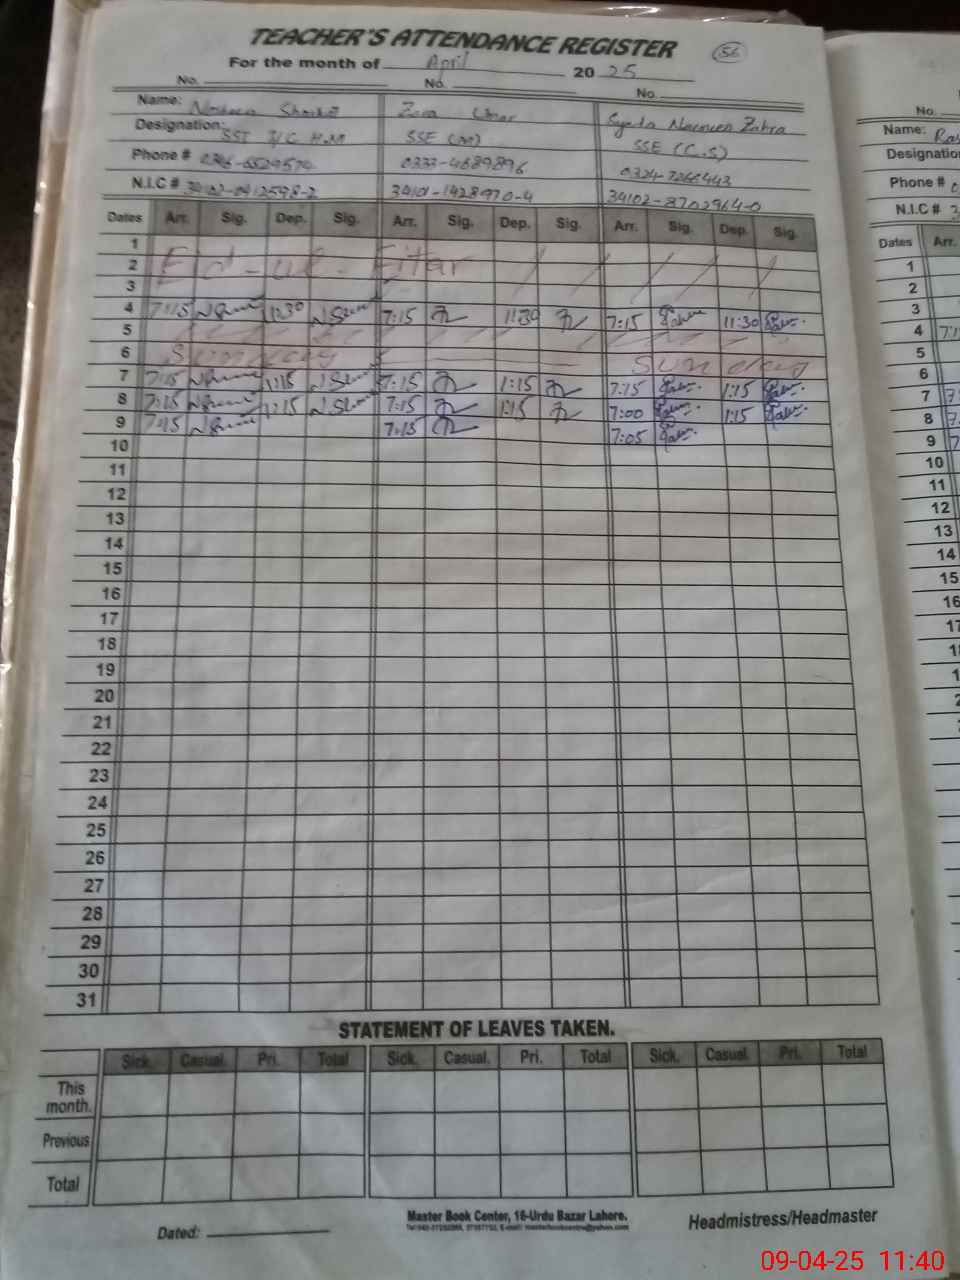 TEACHER'S ATTENDANCE REGISTER 56
For the month of April 2025
No. No. No.
Name: Zara Umar Syeda Zahra
Designation: SST I/C H.M SSE (M) SSE (C.S)
Phone # 0306-6529574 0333-4689896 0324-7266443
N.I.C # 34102-0412598-2 34101-1428970-4 34102-8702964-0
Dates Arr. Sig. Dep. Sig. Arr. Sig. Dep. Sig. Arr. Sig. Dep. Sig.
1
2 Eid-ul-Fitar
3
4 7:15 11:30 7:15 11:30 7:15 11:30
5
6 Sunday Sunday
7 7:15 1:15 7:15 1:15 7:15 1:15
8 7:15 1:15 7:15 1:15 7:00 1:15
9 7:15 7:15 7:05
10
11
12
13
14
15
16
17
18
19
20
21
22
23
24
25
26
27
28
29
30
31
STATEMENT OF LEAVES TAKEN.
Sick. Casual. Pri. Total Sick. Casual. Pri. Total Sick. Casual. Pri. Total
This month.
Previous
Total
Dated:
Master Book Center, 16-Urdu Bazar Lahore.
Headmistress/Headmaster
No.
Name: Ras
Designatio
Phone #
N.I.C #
Dates Arr.
1
2
3
4
5
6
7
8
9
10
11
12
13
14
15
16
09-04-25 11:40